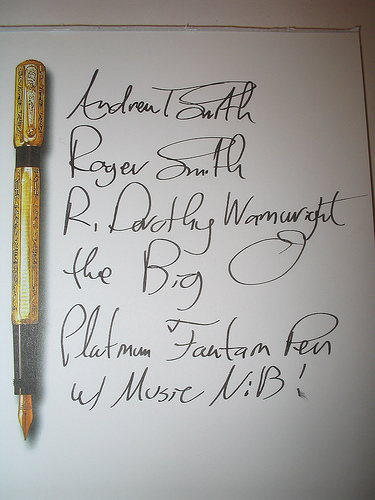 Andrew T Smith
Roger Smith
R. Dorothy Waynwright
the Big O
Platinum Fantam Pen
w/ Music NiB!